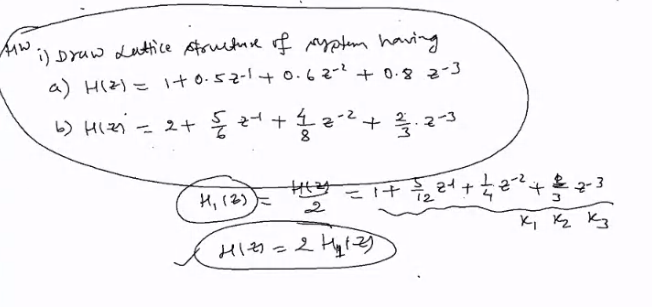 HW i) Draw Lattice structure of system having
a) H(z) = 1+0.5z-1 + 0.6z-2 + 0.8 z-3
b) H(z) = 2+ 5/6 z-1 + 4/8 z-2 + 2/3 . z-3
H1(z) = H(z)/2 = 1+ 5/12 z-1 + 1/4 z-2 + /3 z-3
K1 K2 K3
H(z) = 2 H1(z)